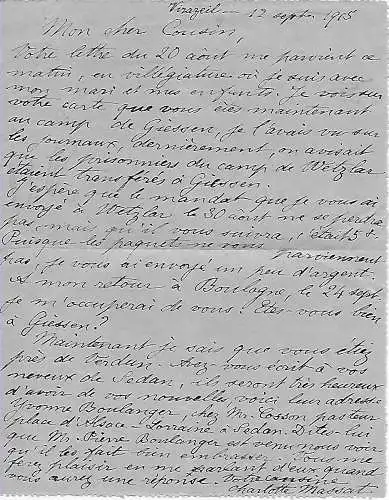 Virazeil - 12 sept. 1915
Mon cher Cousin,
Votre lettre du 20 août me parvient ce
matin, en villégiature où je suis avec
mon mari et mes enfants. Je vois sur
votre carte que vous êtes maintenant
au camp de Giessen, je l'avais vu sur
les journaux, dernièrement, on avisait
que les prisonniers du camp de Wetzlar
étaient transférés à Giessen.
J'espère que le mandat que je vous ai
envoyé à Wetzlar le 30 août ne se perdra
pas, mais qu'il vous suivra, c'était 5
Puisque les paquets ne vous
parviennent
pas, je vous ai envoyé un peu d'argent.
A mon retour à Boulogne, le 24 sept
je m'occuperai de vous! Êtes-vous bien
à Giessen?
Maintenant je sais que vous étiez
près de Verdun. Avez-vous écrit à vos
neveux de Sedan, ils seront très heureux
d'avoir de vos nouvelles, voici leur adresse
Yvonne Boulanger, chez Mr. Cosson pasteur
place d'Alsace-Lorraine à Sedan. Dites-lui
que Mr. Pierre Boulanger est venu nous voir
qu'il les fait bien embrasser. Vous me
ferez plaisir en me parlant d'eux quand
vous aurez une réponse. Votre cousine
Charlotte Massat